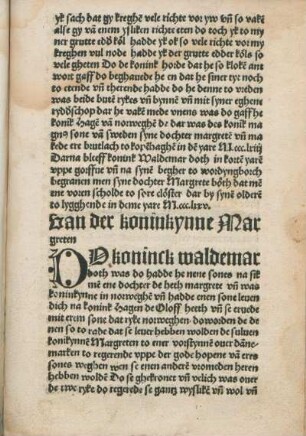 yk sach dat gy kreghe vele richte vor yw vñ so vakē
alse gy vā enem ysliken richte eten do toch yk to my
ner grutte edd̉ kōl hadde yk ok so vele richte vor my
kreghen vul node hadde yk der grutte edder kōls so
vele gheten Do de konink horde dat he so kloke ant
wort gaff do beghauede he en dat he siner tyt noch
to etende en ynhadde hadde do he denne to vreden
was beide buтē rykes vñ bynnē vñ mit syner eghene
rydd̉schop dar he vakē mede vnens was do gaff he
konik Hagē vā norweghē dr̉ dar was des konik ma
gn9 sone vñ sweden syne dochter margretē vñ ma
kede ere brutlach to kopēhaghē in dē yare M.ccc.lviij
Darna bleeff konink Waldemar doth in kortē yarē
vppe gorssue vñ na synē begher to wordyngborch
begrauen men syne dochter Margrete bōth dat mē
ene voren scholde to sore closter dar by synē oldere
to lygghende in deme yare M.ccc.lxv.
Van der koninkynne Mar
greten
DO koninck waldemar
doth was do hadde he nene sones na sik
mē ene dochter de heth margrete vñ was
koninkynne in norweghē vñ hadde enen sone leuen
dich na konink Hagen de Oloff heth vñ se ervede
mit erem sone dat ryke norweghen do worden de de
nen so to rade dat se leuer hebben wolden de suluen
konikynnē Margreten to ener vorstynnē ouer dāne
marken to regerende vppe der gode hopene vā eres
sones weghen wen se enen anderē vromeden heren
hebben woldē Do se ghekronet vñ velich was ouer
de twe ryke do regerde se gantz wyslikē vñ wol vñ